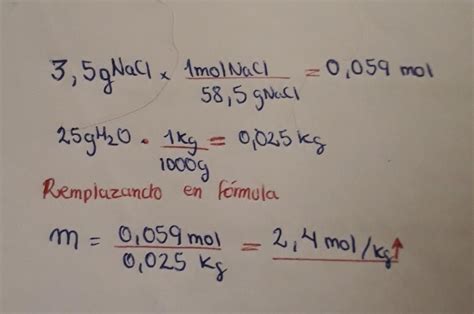 3,5gNaCl x 1molNaCl / 58,5 gNaCl = 0,059 mol
25gH2O • 1Kg / 1000g = 0,025 kg
Remplazando en fórmula
m = 0,059 mol / 0,025 kg = 2,4 mol/kg↑